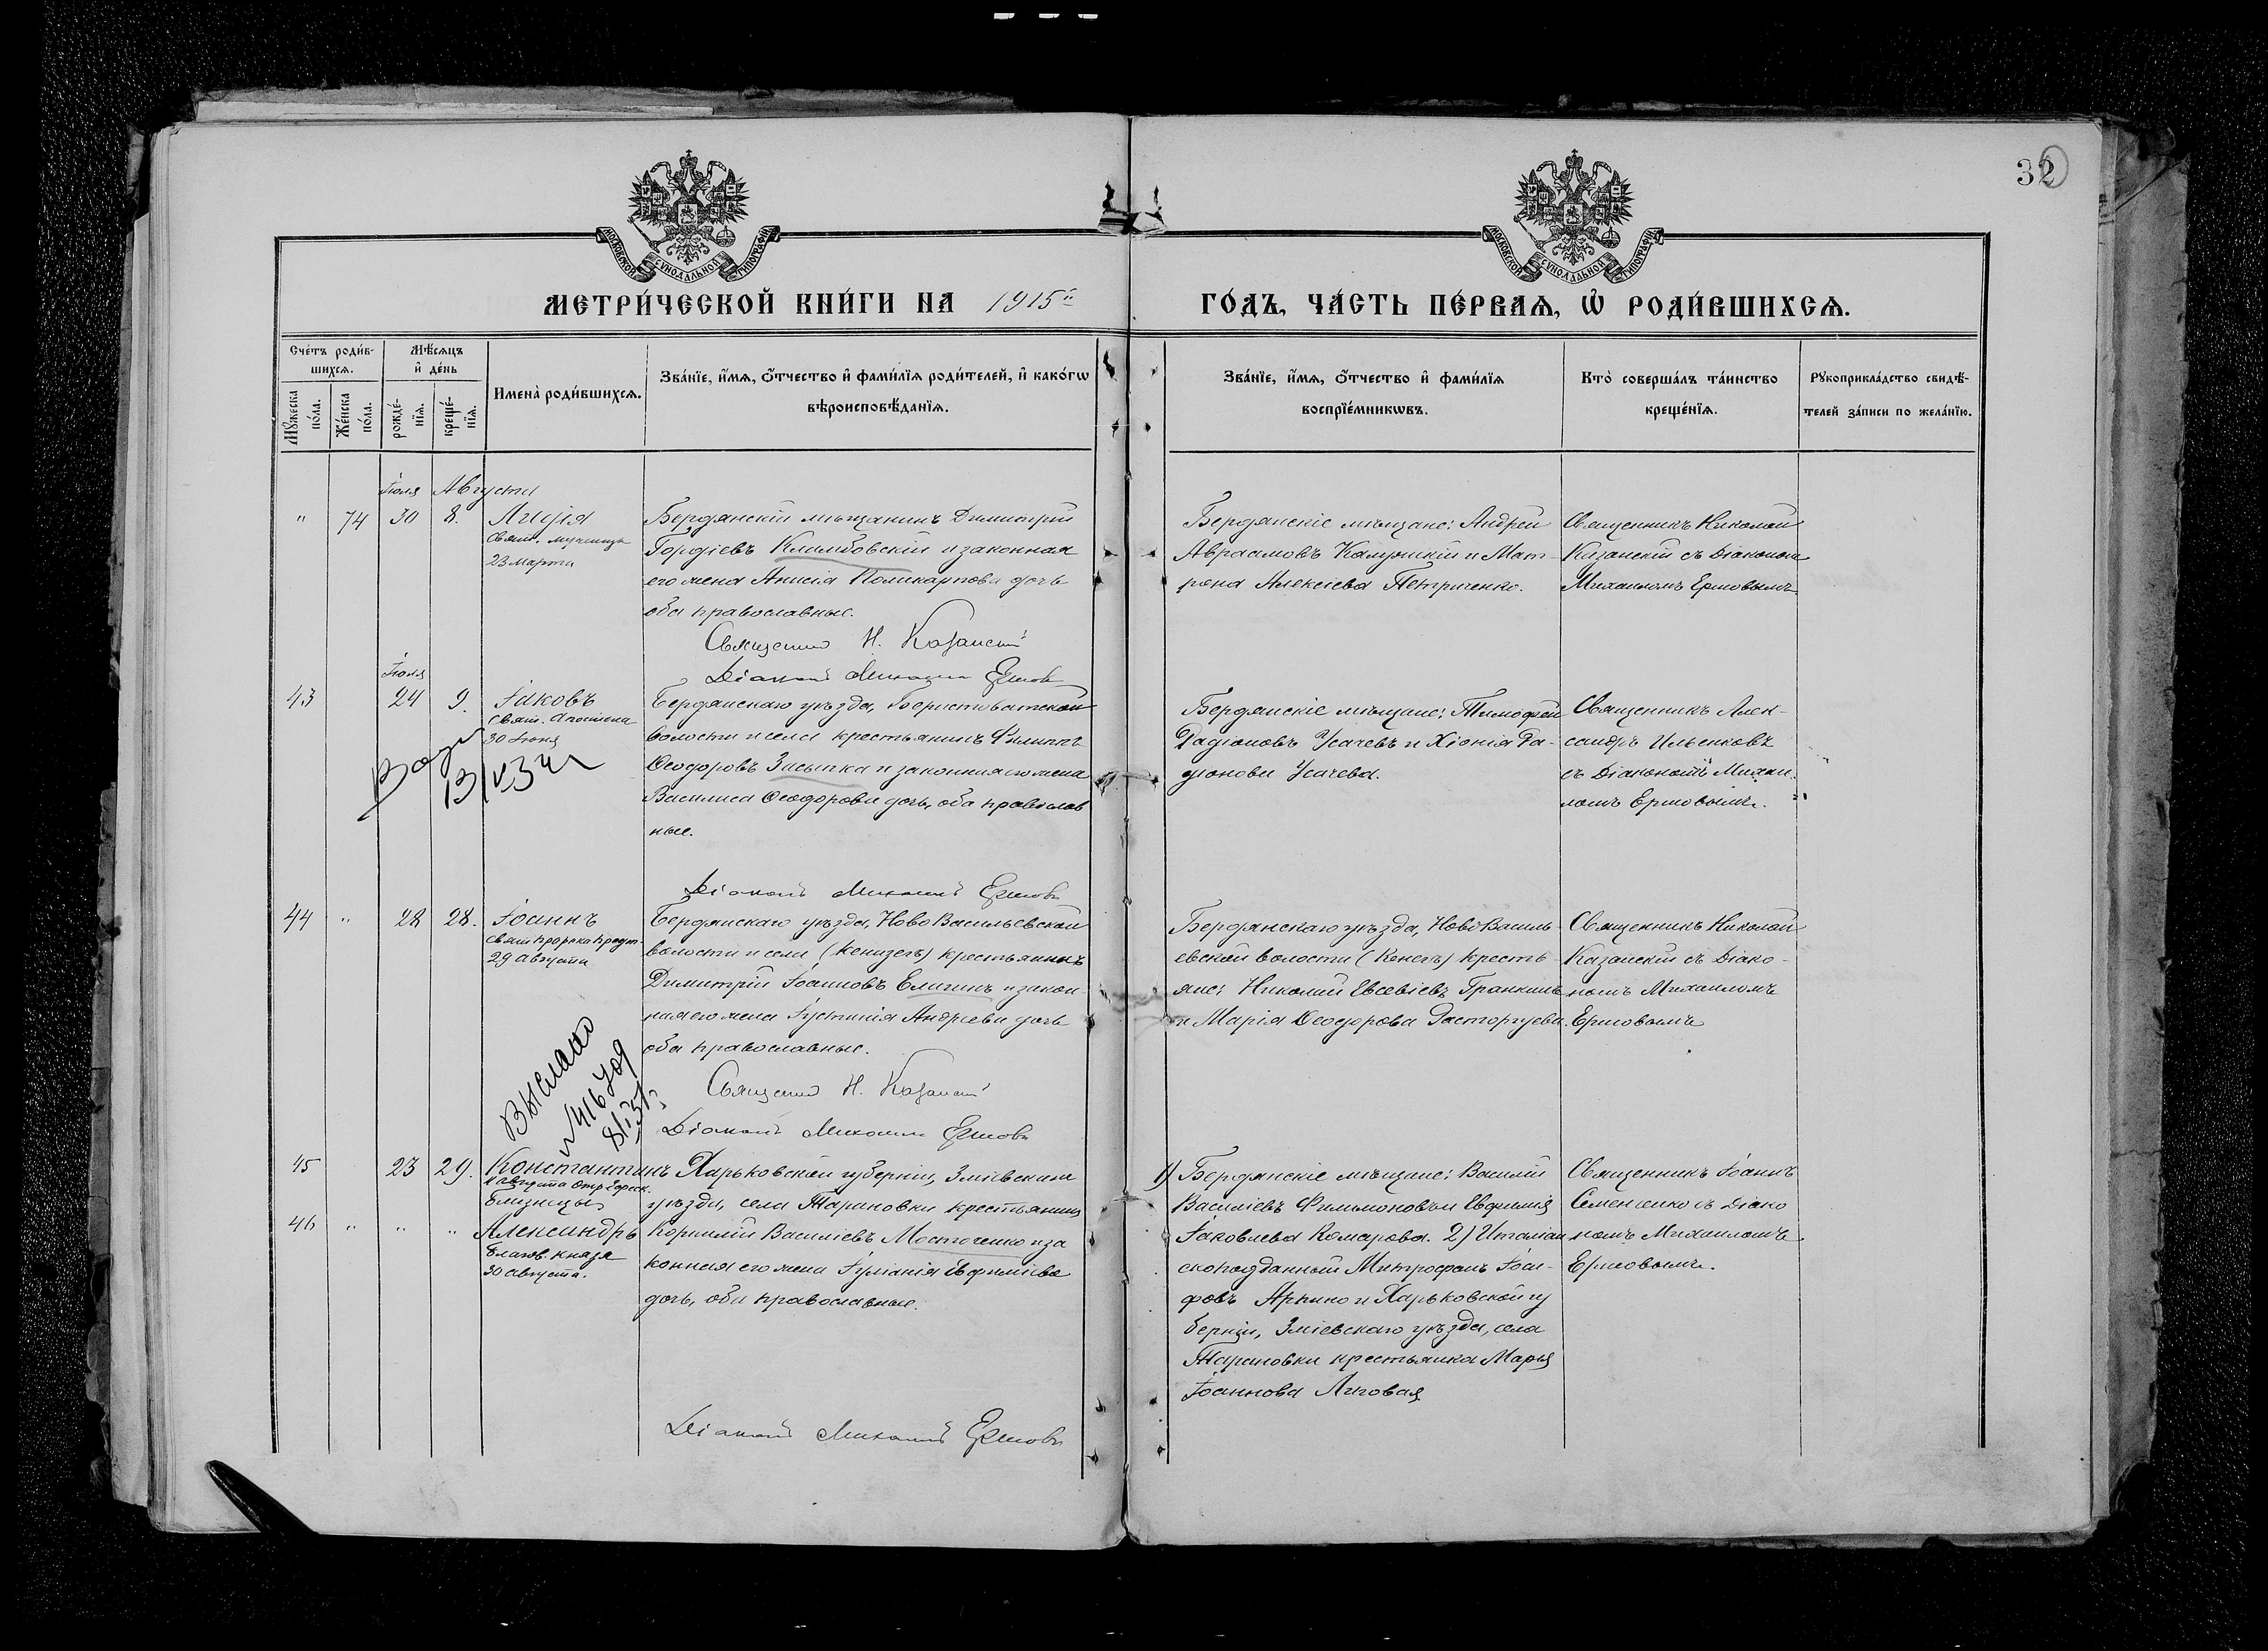 32
МОСКОВСКОЙ СѴНОДАЛЬНОЙ ТИПОГРАФІИ
МОСКОВСКОЙ СѴНОДАЛЬНОЙ ТИПОГРАФІИ
МЕТРИ́ЧЕСКОЙ КНИ́ГИ НА 1915й ГО́ДЪ, ЧА́СТЬ ПЕ́РВАѦ, Ѡ҆ РОДИ́ВШИХСѦ.
Сче́тъ роди́в-
шихсѧ.
Мꙋ́жеска по́ла.
Же́нска по́ла.
Мѣ́сѧцъ
и҆ де́нь
рожде́-
нїѧ.
креще́-
нїѧ.
Имена̀ роди́вшихсѧ.
Зва́нїе, и҆́мѧ, ѻ҆́тчество и҆ фами́лїѧ роди́телей, и҆ како́гѡ
вѣроисповѣ́данїѧ.
Зва́нїе, и҆́мѧ, ѻ҆́тчество и҆ фами́лїѧ
воспрїе́мникѡвъ.
Кто̀ соверша́лъ та́инство
креще́нїѧ.
Рꙋкоприкла́дство свидѣ́-
телей за́писи по жела́нїю.
Іюля Августа
" 74 30 8. Лидія
Свят. мученицы
23 марта
Бердянскій мѣщанинъ Димитрій
Гордіевъ Климбовскій и законная
его жена Анисія Поликарпова дочь
оба православные.
Священникъ Н. Казанскій
Діаконъ Михаилъ Ершовъ
Бердянскіе мѣщане: Андрей
Авраамовъ Калужскій и Мат-
рона Алексіева Петриченко.
Священникъ Николай
Казанскій съ Діакономъ
Михаиломъ Ершовымъ
Іюля
43 24 9. Іаковъ
Свят. Апостола
30 Іюня
Бердянскаго уѣзда, Берестоватской
волости и села крестьянинъ Филиппъ
Ѳеодоровъ Засыпка и законная его жена
Василиса Ѳеодорова дочь, оба православ
ные.
Діаконъ Михаилъ Ершовъ
Бердянскіе мѣщане: Тимофей
Радіоновъ Усачевъ и Хіонія Ра-
діонова Усачева.
Священникъ Алек-
сандръ Ильенковъ
съ Діакономъ Михаи
ломъ Ершовымъ.
44 " 28 28. Іоаннъ
Свят пророка Предт.
29 Августа
Бердянскаго уѣзда, НовоВасильевской
волости и села (Кенегезъ) крестьянинъ
Димитрій Іоанновъ Елагинъ и закон
ная его жена Іустинія Андреева дочь
оба православные.
Священникъ Н. Казанскій
Діаконъ Михаилъ Ершовъ
Бердянскаго уѣзда, НовоВасиль
евской волости (Кенегезъ) кресть-
яне: Николай Евсевіевъ Гранкинъ
и Марія Ѳеодорова Расторгуева.
Священникъ Николай
Казанскій съ Діако-
номъ Михаиломъ
Ершовымъ
Выслано
45 23 29. Константинъ
4 августа Отр Ефеск.
близнецы
46 " " " Александръ
благов. князя
30 августа.
Харьковской губерніи, Зміевскаго
уѣзда, села Тарановки крестьянинъ
Корнилій Василіевъ Мосточенко и за
конная его жена Іуліанія Евфиміева
дочь, оба православные.
Діаконъ Михаилъ Ершовъ
1) Бердянскіе мѣщане: Василій
Василіевъ Филимоновъ и Евфимія
Іаковлева Комарова. 2) Италіан
скоподданный Митрофанъ Іоси-
фовъ Арпино и Харьковской гу
берніи, Зміевскаго уѣзда, села
Тарановки крестьянка Марія
Іоаннова Лиховая
Священникъ Іоаннъ
Семененко съ Діако
номъ Михаиломъ
Ершовымъ.